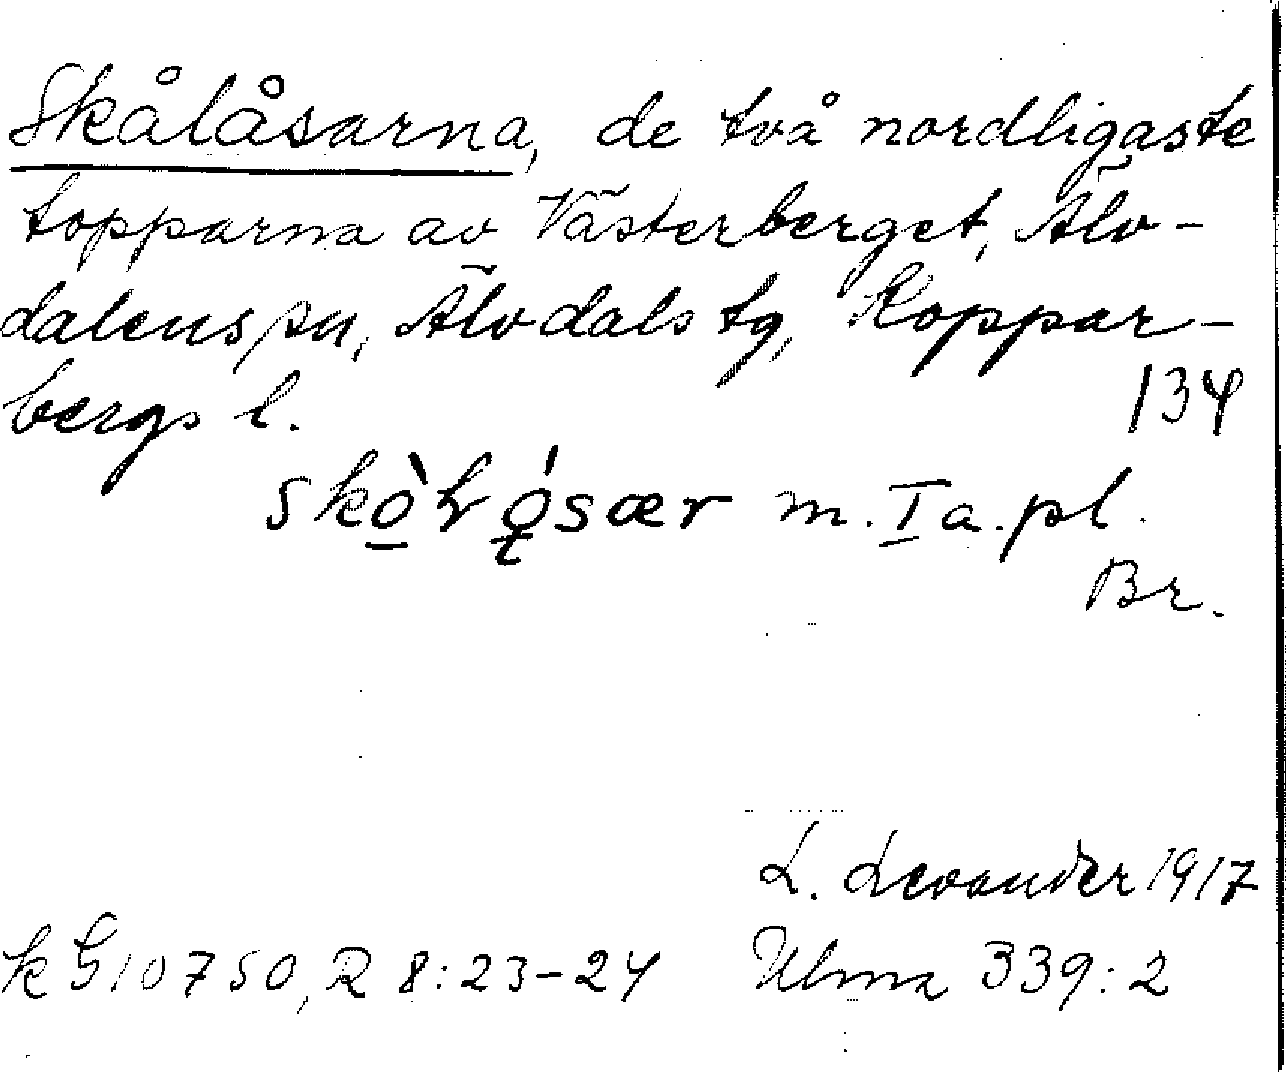 Skålåsarna, de två nordligaste
topparna av Västerberget, Älv-
dalens sn, Älvdals tg, Koppar-
bergs l.
134
m. I a. pl.
Br.
L. Levander 1917
k G10750, R 8:23-24 Ulma 339:2